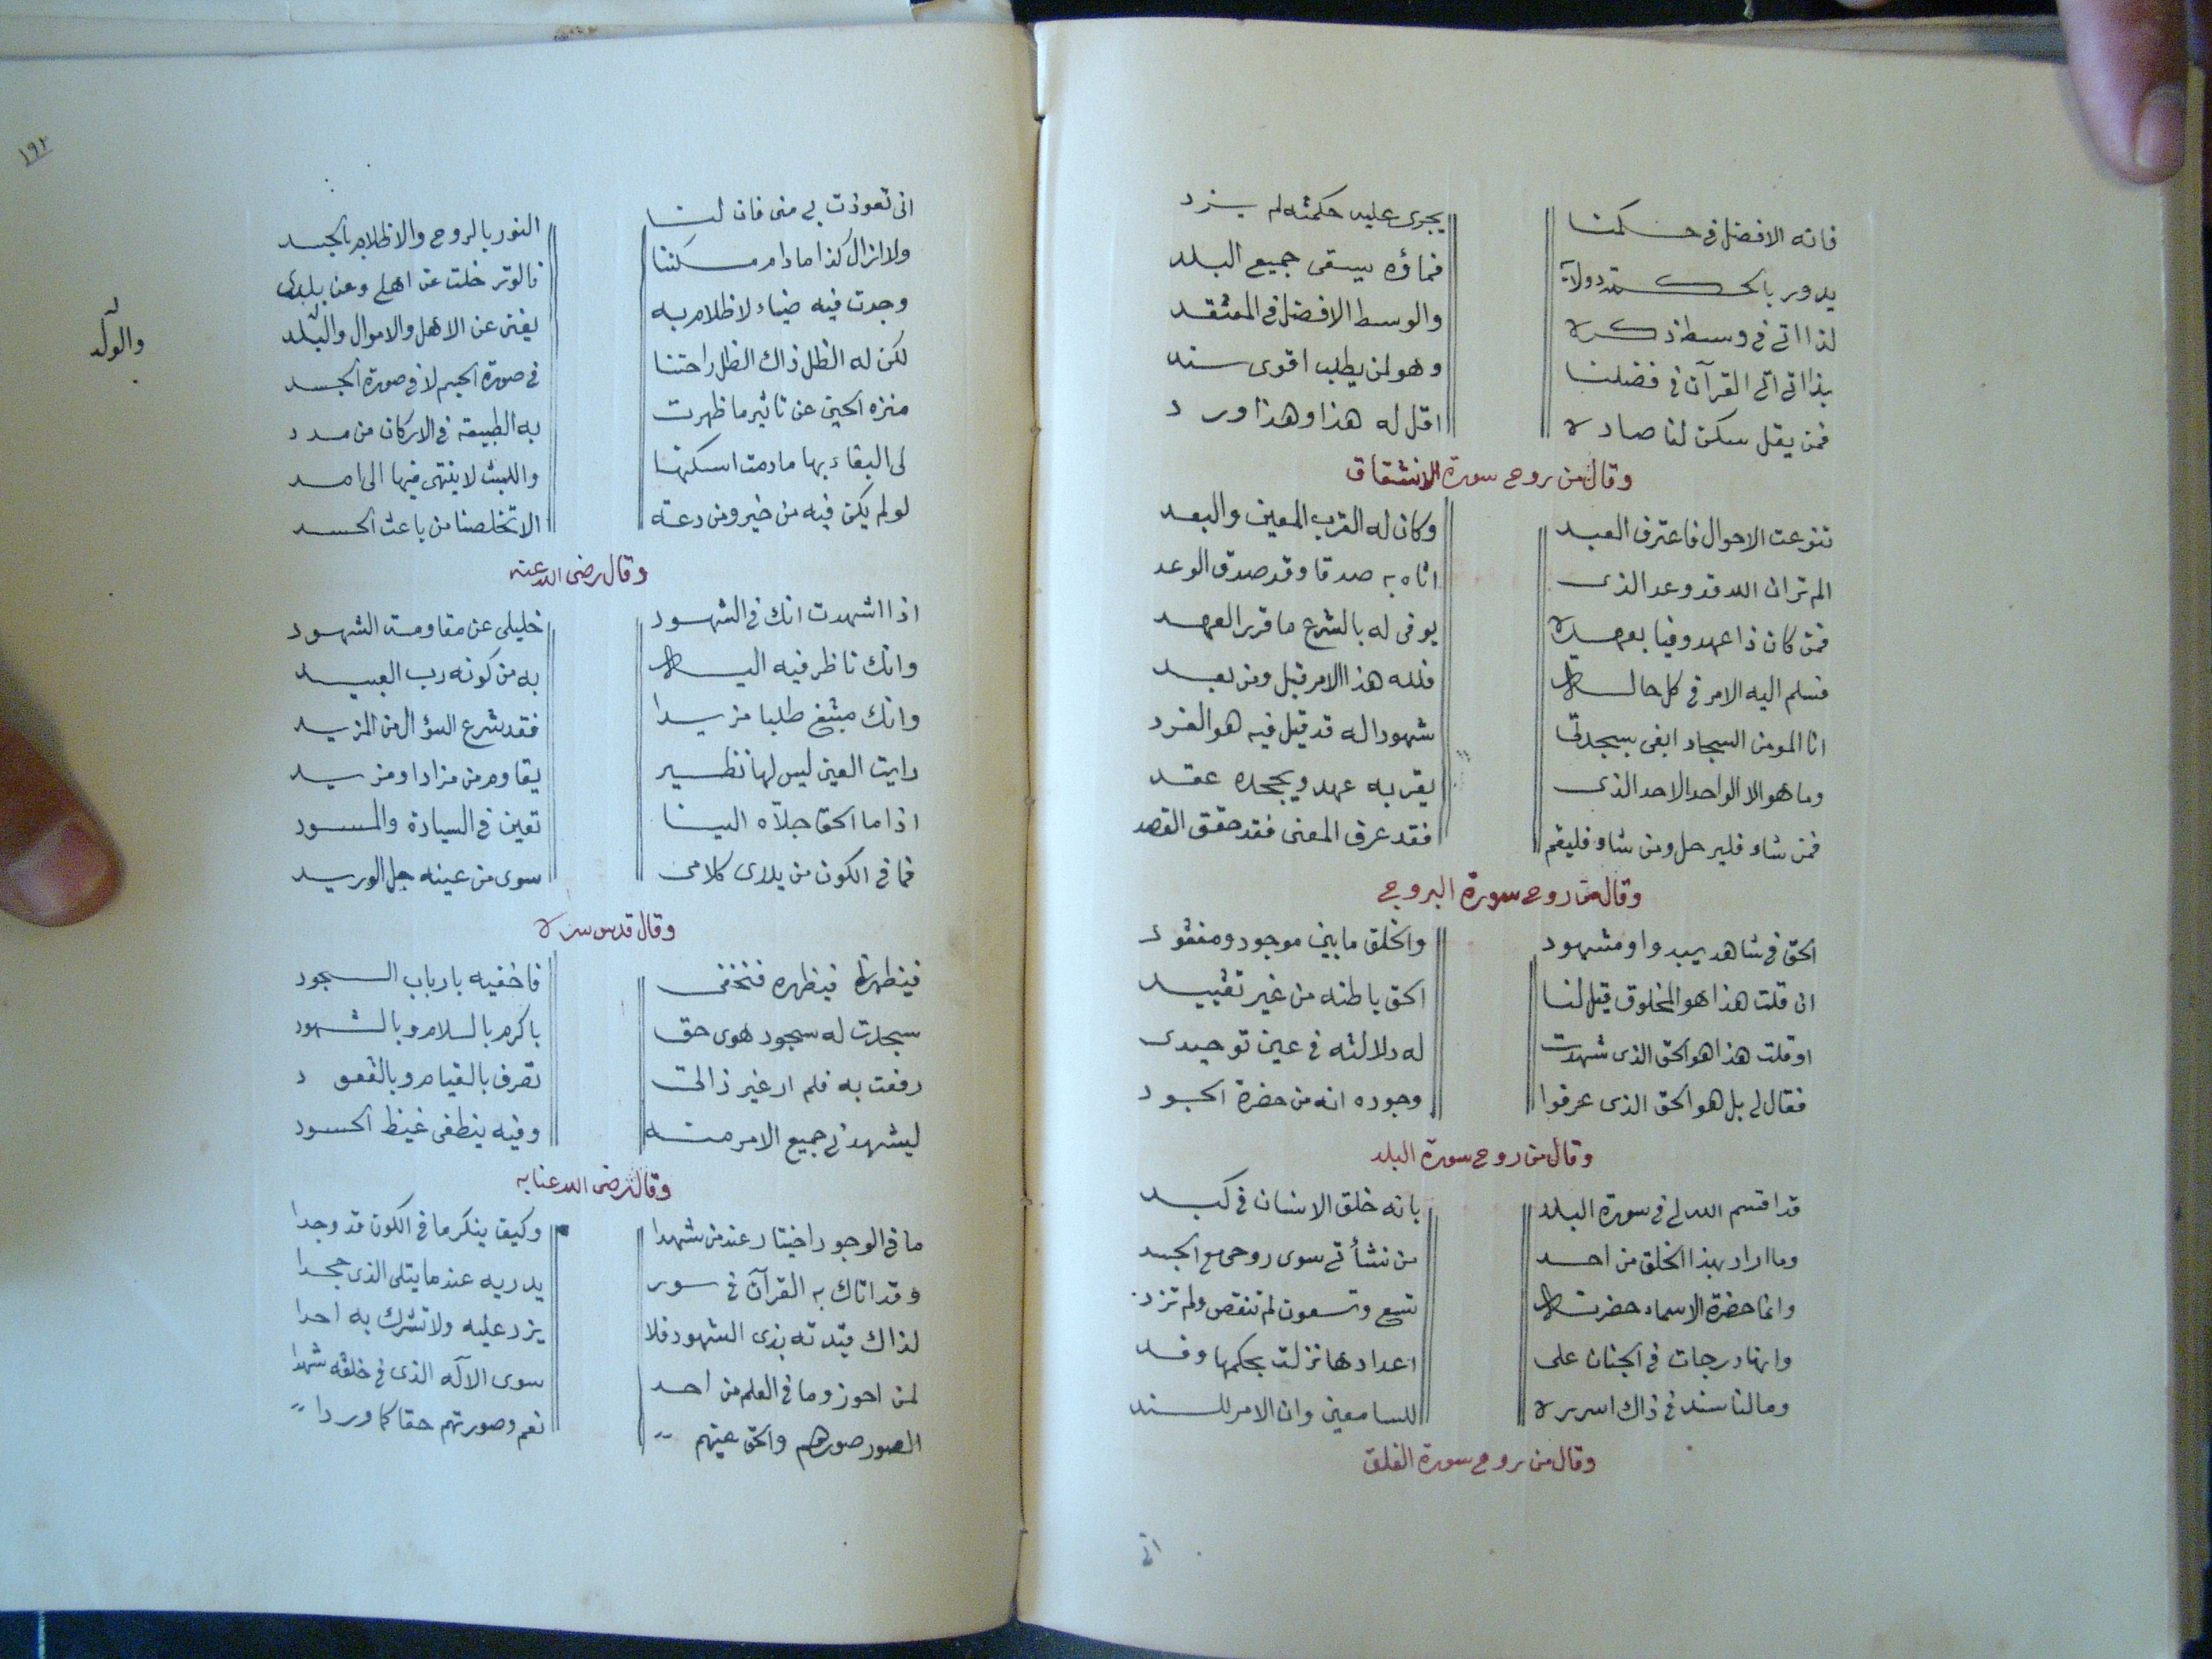 فانه الافضل في حكمنا يجرى عليه حكمته لم يزد
يدور بالحكمة دولابه فماؤه يسقى جميع البلد
لذا اتى في وسط ذكره والوسط الافضل في المعتقد
بذا اتى القرآن في فضلنا وهو لمن يطلب اقوى سند
فمن يقل سكن لنا صاده اقل له هذا وهذا ورد
وقال من روح سورة الانشقاق
تنوعت الاحوال فاعترف العبد وكان له القرب المعين والبعد
الم تر ان الله قد وعد الذى اتاه به صدقا وقد صدق الوعد
فمن كان ذا عهد وفيا بعهده يوفى له بالشرع ما قرر العهد
فسلم اليه الامر في كل حالة فلله هذا الامر قبل ومن بعد
انا المومن السجاد ابغى بسجدتى شهودا له قد قيل فيه هو الفرد
وما هو الا الواحد الاحد الذى يقر به عهد ويجحده عقد
فمن شاء فليرحل ومن شاء فليقم فقد عرف المعنى فقد حقق القصد
وقال من روح سورة البروج
الحق في شاهد يبدوا ومشهود والخلق ما بين موجود ومفقود
ان قلت هذا هو المخلوق قيل لنا الحق باطنه من غير تقييد
او قلت هذا هو الحق الذى شهدت له دلالته في عين توحيدى
فقال لي بل هو الحق الذى عرفوا وجوده انه من حضرة الجود
وقال من روح سورة البلد
قد اقسم الله لي في سورة البلد بانه خلق الانسان في كبد
وما اراد بهذا الخلق من احد من نشأتي سوى روحى مع الجسد
وانما حضرة الاسماء حضرته تسع وتسعون لم تنقص ولم تزد
وانها درجات في الجنان على اعدادها نزلت بحكمها وقد
وما لنا سند في ذاك اسرده للسامعين وان الامر للسند
وقال من روح سورة الفلق
اني
١٩٢
اني تعوذت بي مني فان لنا النور بالروح والاظلام بالجسد
ولا ازال كذا ما دام مسكننا
وجدت فيه ضياء لا ظلام به يغنى عن الاهل والاموال والبلد
والولد
لكن له الظل ذاك الظل راحتنا في صورة الجسم لا في صورة الجسد
منزه الحين عن تاثير ما ظهرت به الطبيعة في الاركان من مدد
لى البقاء بها ما دمت اسكنها واللبث لا ينتهى فيها الى امد
لو لم يكن فيه من خير ومن دعة الا تخلصنا من باعث الحسد
وقال رضى الله عنه
اذا اشهدت انك في الشهود خليلى عن مقاومة الشهود
وانك ناظر فيه اليه به من كونه رب العبيد
وانك مبتغ طلبا مزيدا فقد شرع السؤال من المزيد
رايت العين ليس لها نظير يقاوم من مزاد او مزيد
اذا ما الحق جلاه الينا تعين في السيادة والمسود
فما في الكون من يدرى كلامى سوى من عينه حبل الوريد
وقال قدس سره
فينظهرنا فينظهره فنخفى فاخفيه بارباب السجود
سجدت له سجود هوى حق باكرم بالسلام وبالشهود
رفعت به فلم ار غير ذاتى تصرف بالقيام وبالقعود
ليشهدني جميع الامر منه وفيه ينطفى غيظ الحسود
وقال رضى الله عنا به
ما في الوجود اختيار عند من شهدا وكيف ينكر ما في الكون قد وجدا
وقد اتاك به القرآن في سور يدريه عند ما يتلى الذى جحدا
لذاك قيدته بذى الشهود فلا يزد عليه ولا تشرك به احدا
لمن احوز وما في العلم من احد سوى الآله الذى في خلقه شهدا
الصور صورهم والحق عينهم نعم وصورتهم حقا كما وردا